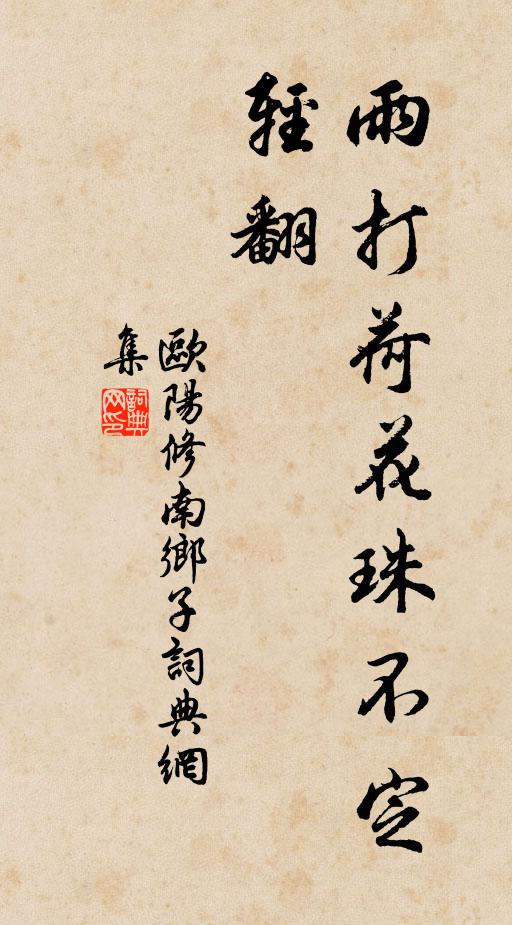 雨打荷花珠不定
輕翻
歐陽修南鄉子詞典網
集
詞典
网印